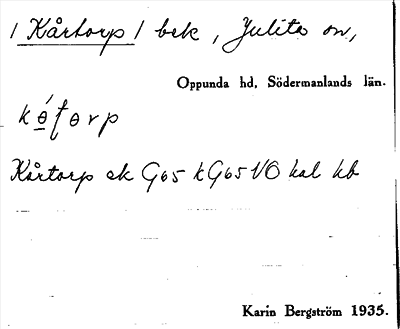 / Kårtorp / bek, Julita sn,
Oppunda hd, Södermanlands län.
Kårtorp ek G65 kG65 VO hal kb
Karin Bergström 1935.